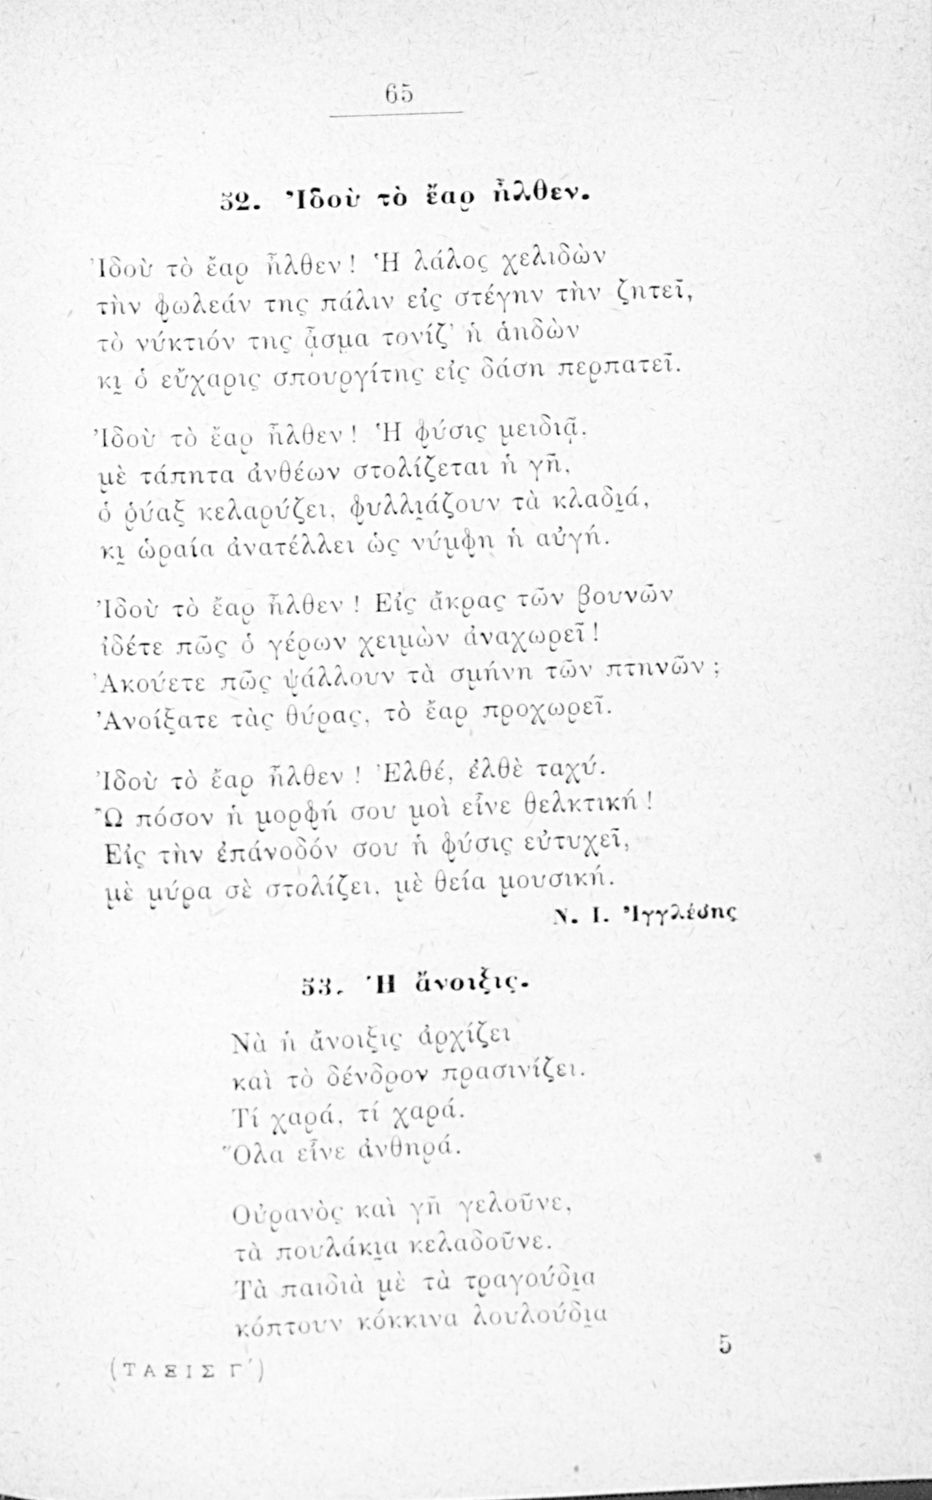 65
52. Ἰδοὺ τὸ ἔαρ ἦλθεν.
Ἰδοὺ τὸ ἔαρ ἦλθεν! Ἡ λάλος χελιδὼν
τὴν φωλεάν της πάλιν εἰς στέγην τὴν ζητεῖ,
τὸ νύκτιόν της ᾆσμα τονίζ' ἡ ἀηδὼν
κι̮ ὁ εὔχαρις σπουργίτης εἰς δάση περπατεῖ.
Ἰδοὺ τὸ ἔαρ ἦλθεν! Ἡ φύσις μειδιᾷ.
μὲ τάπητα ἀνθέων στολίζεται ἡ γῆ,
ὁ ῥύαξ κελαρύζει, φυλλι̮άζουν τὰ κλαδι̮ά,
κι̮ ὡραία ἀνατέλλει ὡς νύμφη ἡ αὐγή.
Ἰδοὺ τὸ ἔαρ ἦλθεν! Εἰς ἄκρας τῶν βουνῶν
ἰδέτε πῶς ὁ γέρων χειμὼν ἀναχωρεῖ!
Ἀκούετε πῶς ψάλλουν τὰ σμήνη τῶν πτηνῶν;
Ἀνοίξατε τὰς θύρας, τὸ ἔαρ προχωρεῖ.
Ἰδοὺ τὸ ἔαρ ἦλθεν! Ἐλθέ, ἐλθὲ ταχύ.
Ὢ πόσον ἡ μορφή σου μοὶ εἶνε θελκτική!
Εἰς τὴν ἐπάνοδόν σου ἡ φύσις εὐτυχεῖ,
μὲ μύρα σὲ στολίζει, μὲ θεία μουσική.
Ν. Ι. Ἰγγλέσης
53. Ἡ ἄνοιξις.
Νὰ ἡ ἄνοιξις ἀρχίζει
καὶ τὸ δένδρον πρασινίζει.
Τί χαρά, τί χαρά.
Ὅλα εἶνε ἀνθηρά.
Οὐρανὸς καὶ γῆ γελοῦνε,
τὰ πουλάκι̮α κελαδοῦνε.
Τὰ παιδιὰ μὲ τὰ τραγούδι̮α
κόπτουν κόκκινα λουλούδι̮α
(ΤΑΞΙΣ Γ') 5